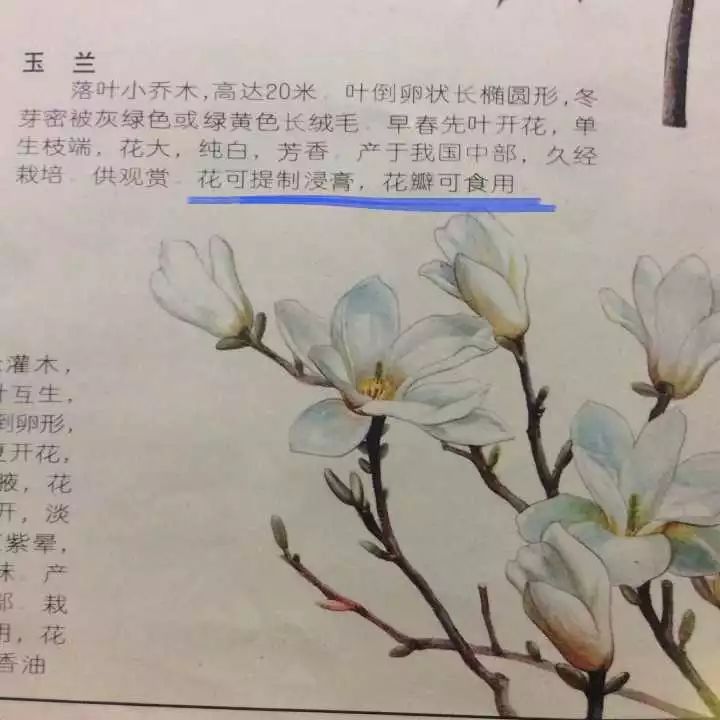 玉 兰
落叶小乔木,高达20米．叶倒卵状长椭圆形,冬
芽密被灰绿色或绿黄色长绒毛．早春先叶开花,单
生枝端，花大，纯白，芳香．产于我国中部，久经
栽培．供观赏．花可提制浸膏，花瓣可食用．
灌木，
互生，
倒卵形，
开花，
腋，花
开，淡
紫晕，
味．产
部．栽
用，花
香油